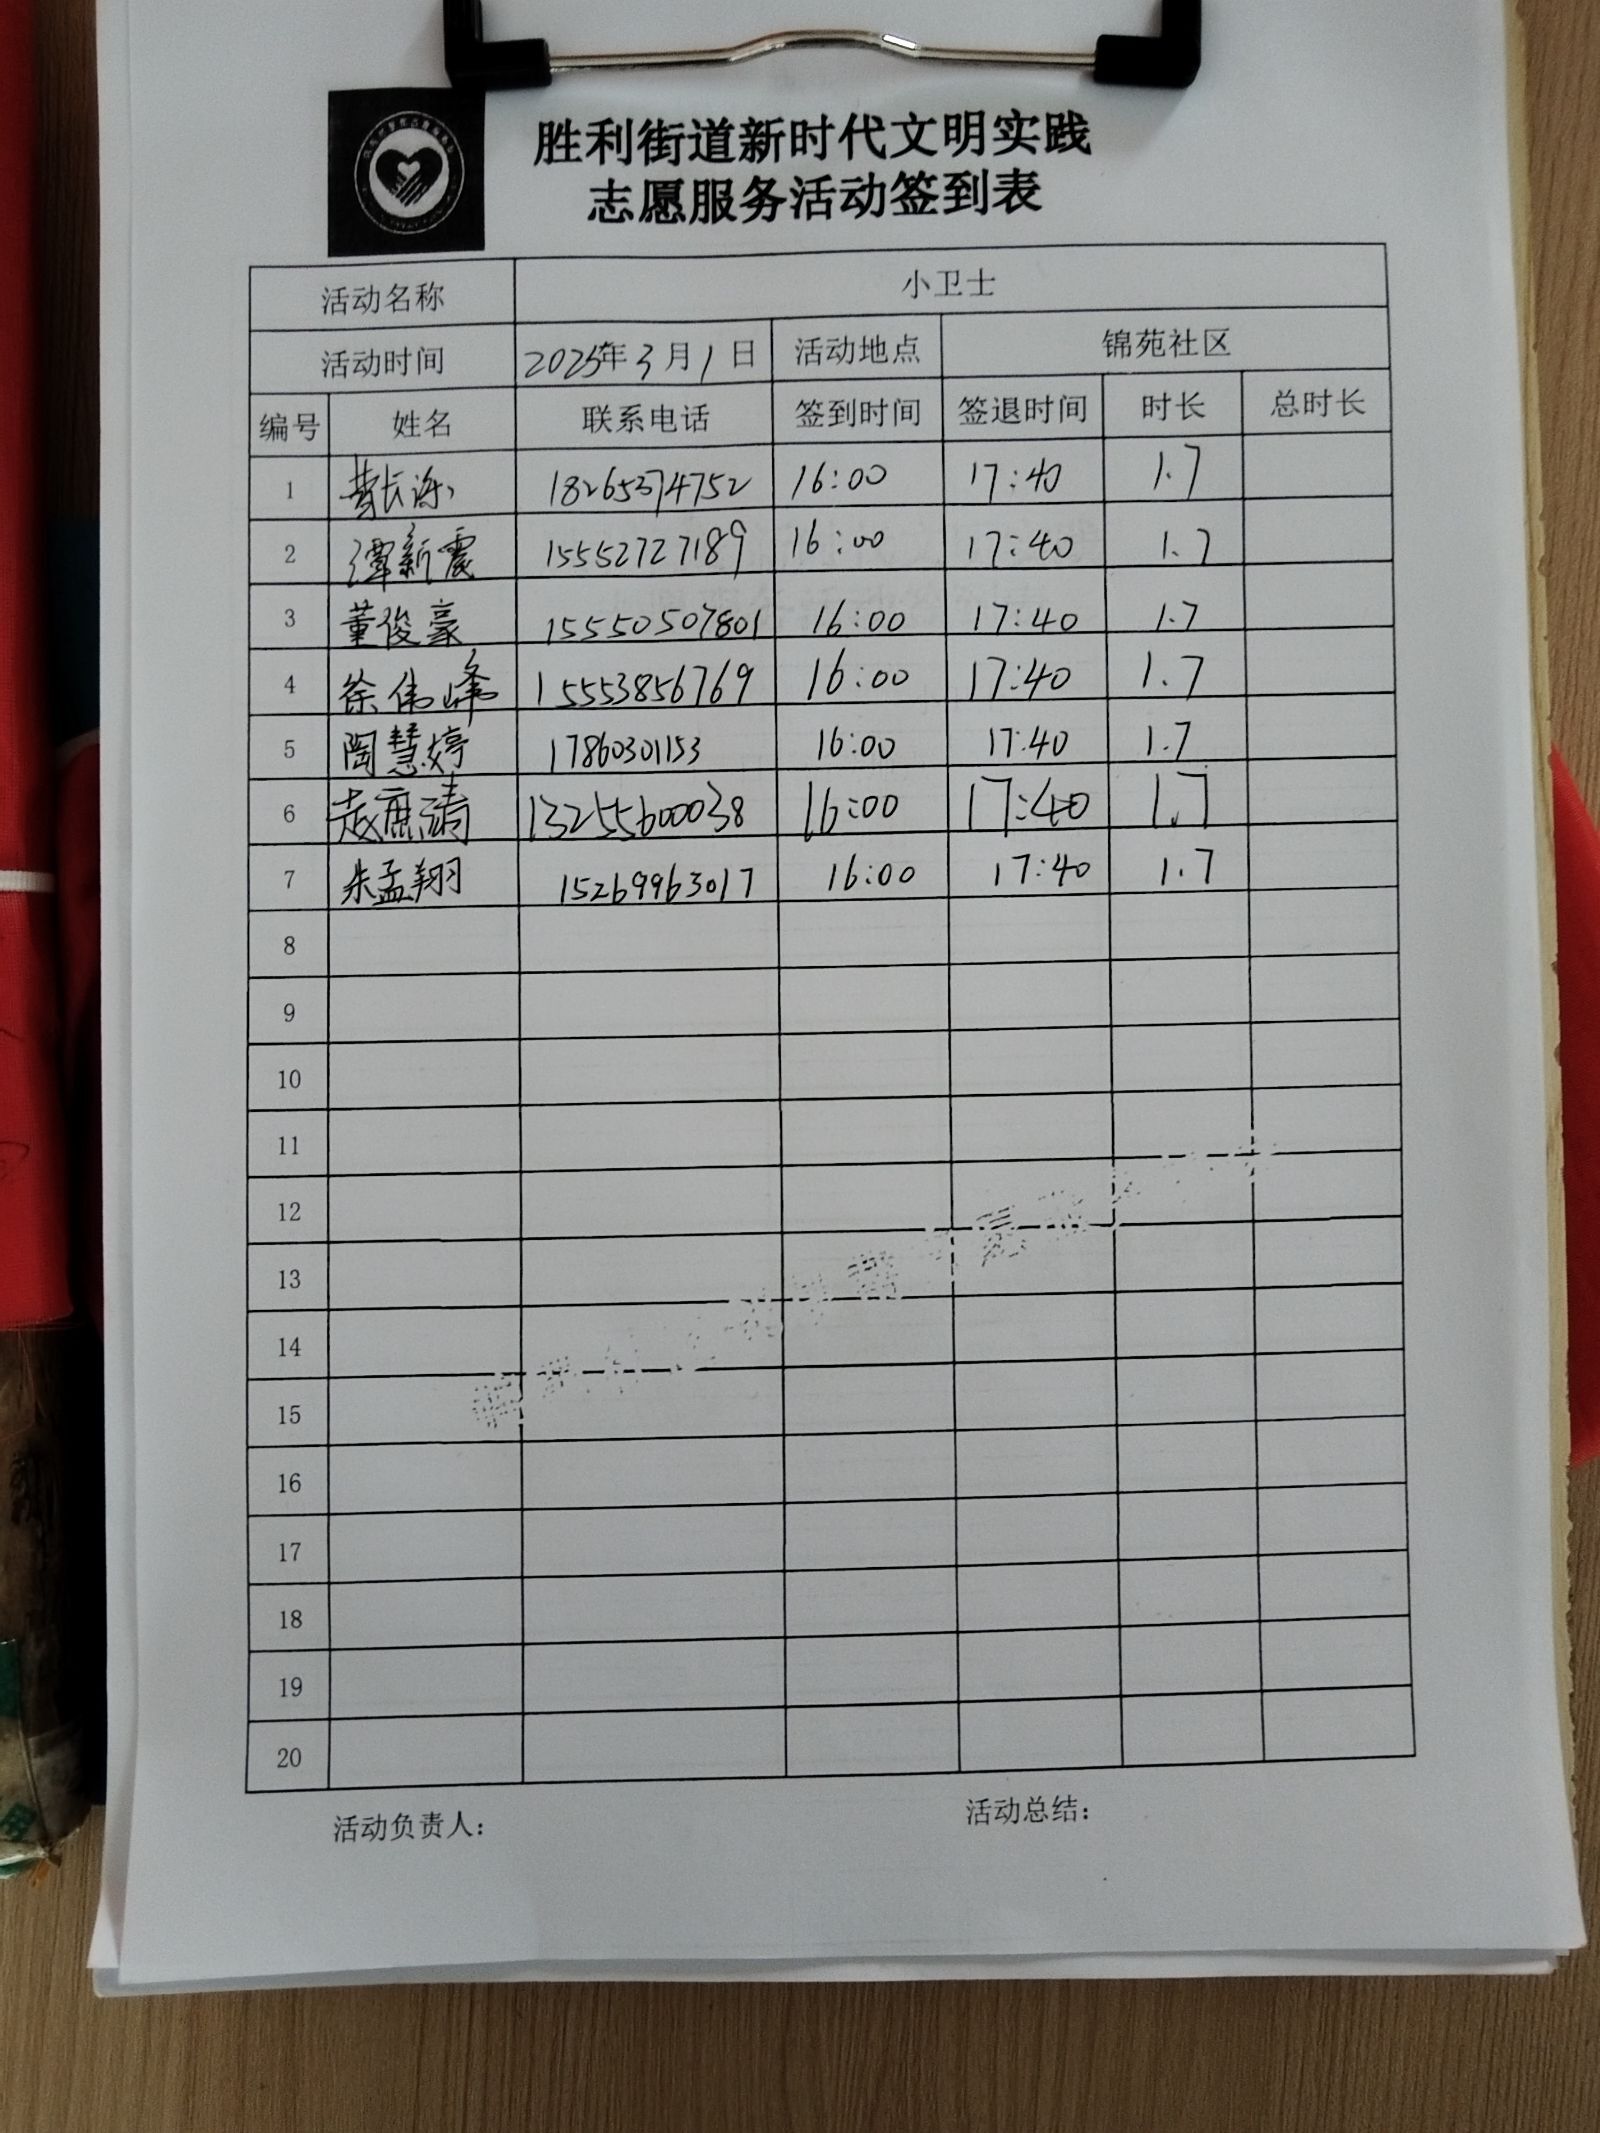 胜利街道新时代文明实践
志愿服务活动签到表
活动名称 小卫士
活动时间 2025年3月1日 活动地点 锦苑社区
编号 姓名 联系电话 签到时间 签退时间 时长 总时长
1 18265374752 16:00 17:40 1.7
2 谭新震 15552727189 16:00 17:40 1.7
3 董俊豪 15550507801 16:00 17:40 1.7
4 徐伟峰 15553856769 16:00 17:40 1.7
5 陶慧婷 17860301153 16:00 17:40 1.7
6 13255600038 16:00 17:40 1.7
7 朱孟翔 15269963017 16:00 17:40 1.7
8
9
10
11
12
13
14
15
16
17
18
19
20
活动负责人： 活动总结：